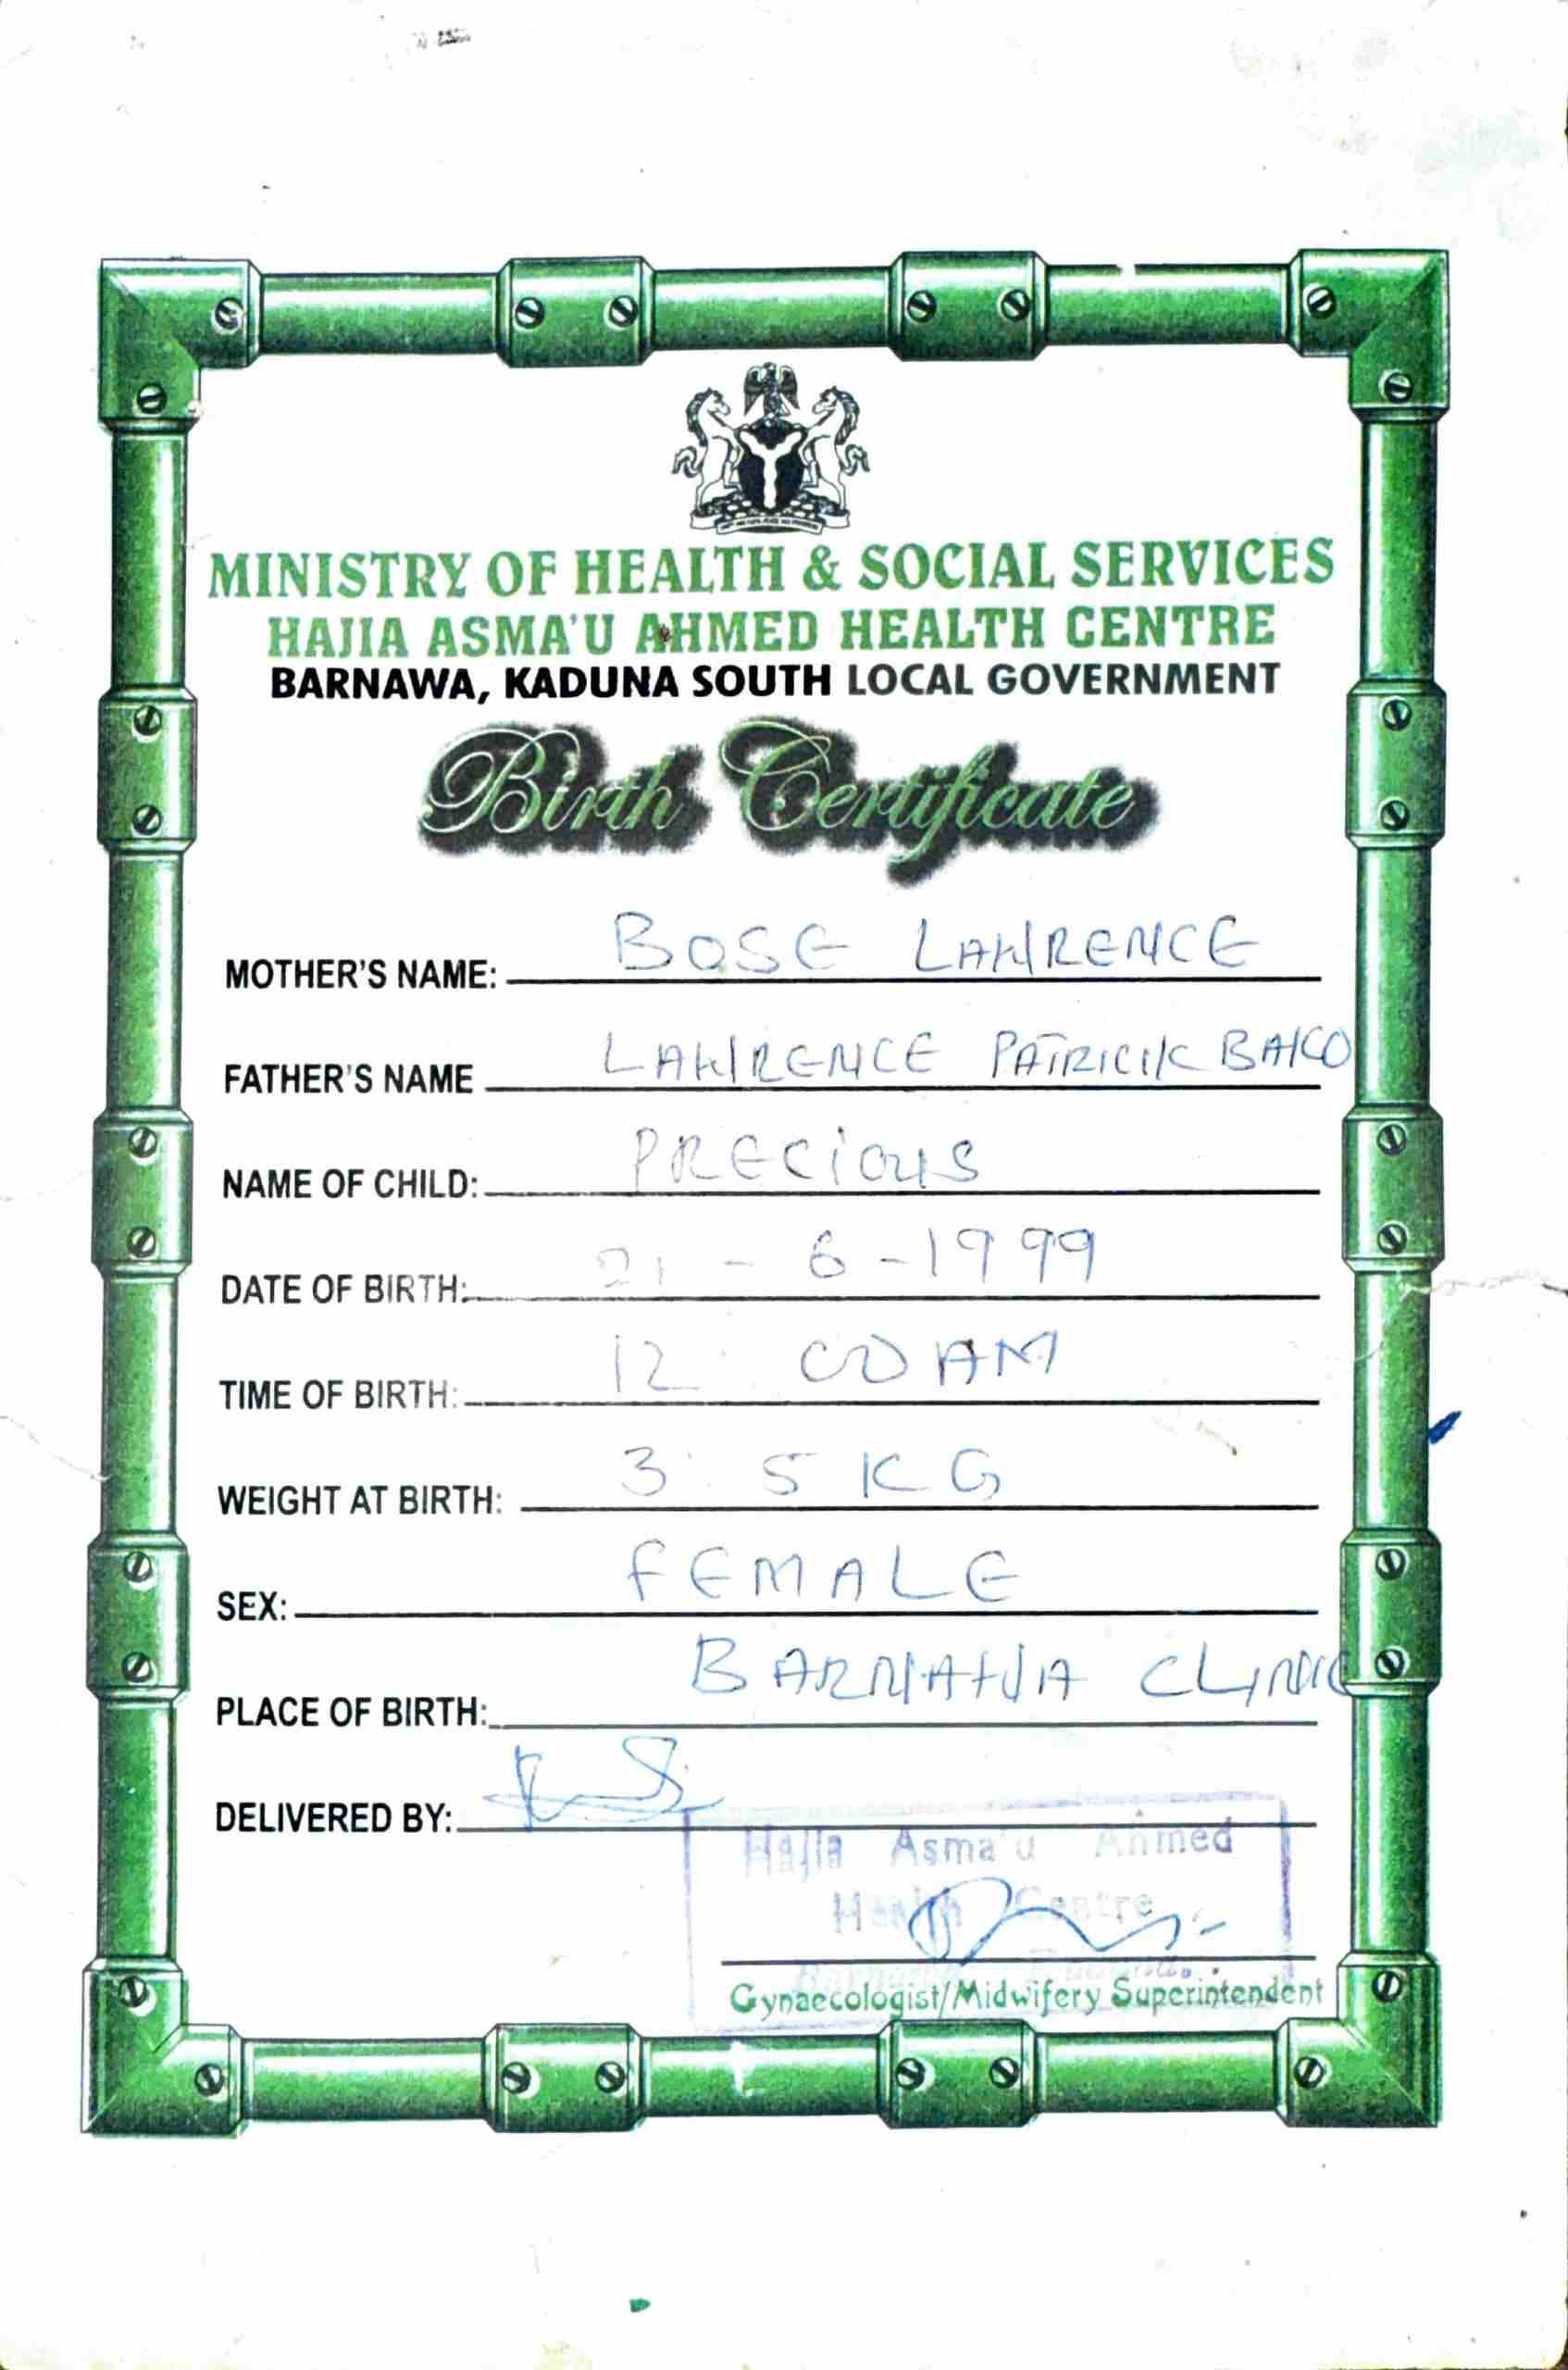 MINISTRY OF HEALTH & SOCIAL SERVICES
HAJIA ASMA'U AHMED HEALTH CENTRE
BARNAWA, KADUNA SOUTH LOCAL GOVERNMENT
Birth Certificate
MOTHER'S NAME: BOSE LAWRENCE
FATHER'S NAME LAWRENCE PATRICK BAKO
NAME OF CHILD: PRECIOUS
DATE OF BIRTH: 21 - 6 - 1999
TIME OF BIRTH: 12:00 AM
WEIGHT AT BIRTH: 3.5 KG
SEX: FEMALE
PLACE OF BIRTH: BARNAWA CLINIC
DELIVERED BY:
Hajia Asma'u Ahmed
Health Centre
Gynaecologist/Midwifery Superintendent